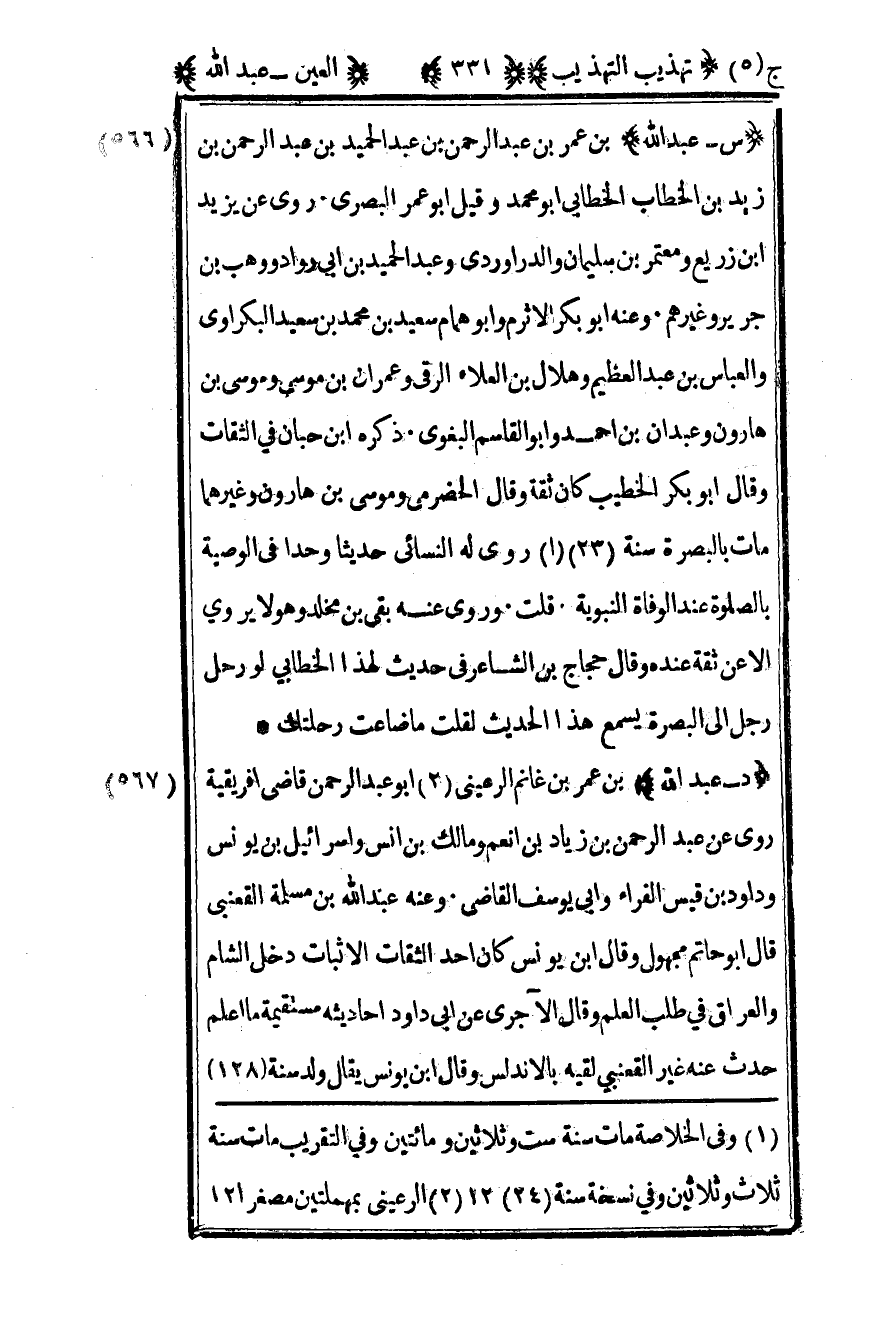 ج (٥) ﴿ تهذيب التهذيب ﴾ ﴿ ٣٣١ ﴾ ﴿ العين ــ عبد الله ﴾
﴿ س ــ عبد الله ﴾ بن عمر بن عبد الرحمن بن عبد الحميد بن عبد الرحمن بن (٥٦٦)
زيد بن الخطاب الخطابي ابو محمد و قيل ابو عمر البصرى ٠ روى عن يزيد
ابن زريع و معتمر بن سليمان والدراوردى وعبد الحميد بن ابي رواد ووهب بن
جرير وغيرهم ٠ وعنه ابو بكر الاثرم وابو همام سعيد بن محمد بن سعيد البكراوى
والعباس بن عبد العظيم وهلال بن العلاء الرقى وعمران بن موسي وموسى بن
هارون وعبدان بن احمد وابو القاسم البغوى ٠ ذكره ابن حبان في الثقات
وقال ابو بكر الخطيب كان ثقة وقال الحضرمي وموسى بن هارون وغيرهما
مات بالبصرة سنة (٢٣) (١) روى له النسائى حديثا وحدا فى الوصية
بالصلوة عند الوفاة النبوية ٠ قلت ٠ وروى عنه بقى بن مخلد وهو لا يروي
الا عن ثقة عنده وقال حجاج بن الشاعر فى حديث لهذا الخطابي لو رحل
رجل الى البصرة يسمع هذا الحديث لقلت ما ضاعت رحلتك *
﴿ د ــ عبد الله ﴾ بن عمر بن غانم الرعينى (٢) ابو عبد الرحمن قاضى افريقية (٥٦٧)
روى عن عبد الرحمن بن زياد بن انعم ومالك بن انس واسرائيل بن يونس
وداود بن قيس الفراء وابي يوسف القاضى ٠ وعنه عبد الله بن مسلمة القعنبى
قال ابو حاتم مجهول وقال ابن يونس كان احد الثقات الاثبات دخل الشام
والعراق في طلب العلم وقال الآجرى عن ابى داود احاديثه مستقيمة ما اعلم
حدث عنه غير القعنبي لقيه بالاندلس وقال ابن يونس يقال ولد سنة (١٢٨)
(١) وفى الخلاصة مات سنة ست وثلاثين و مائتين وفي التقريب مات سنة
ثلاث وثلاثين وفي نسخة سنة (٣٤) ١٢ (٢) الرعينى بمهملتين مصغر ١٢١